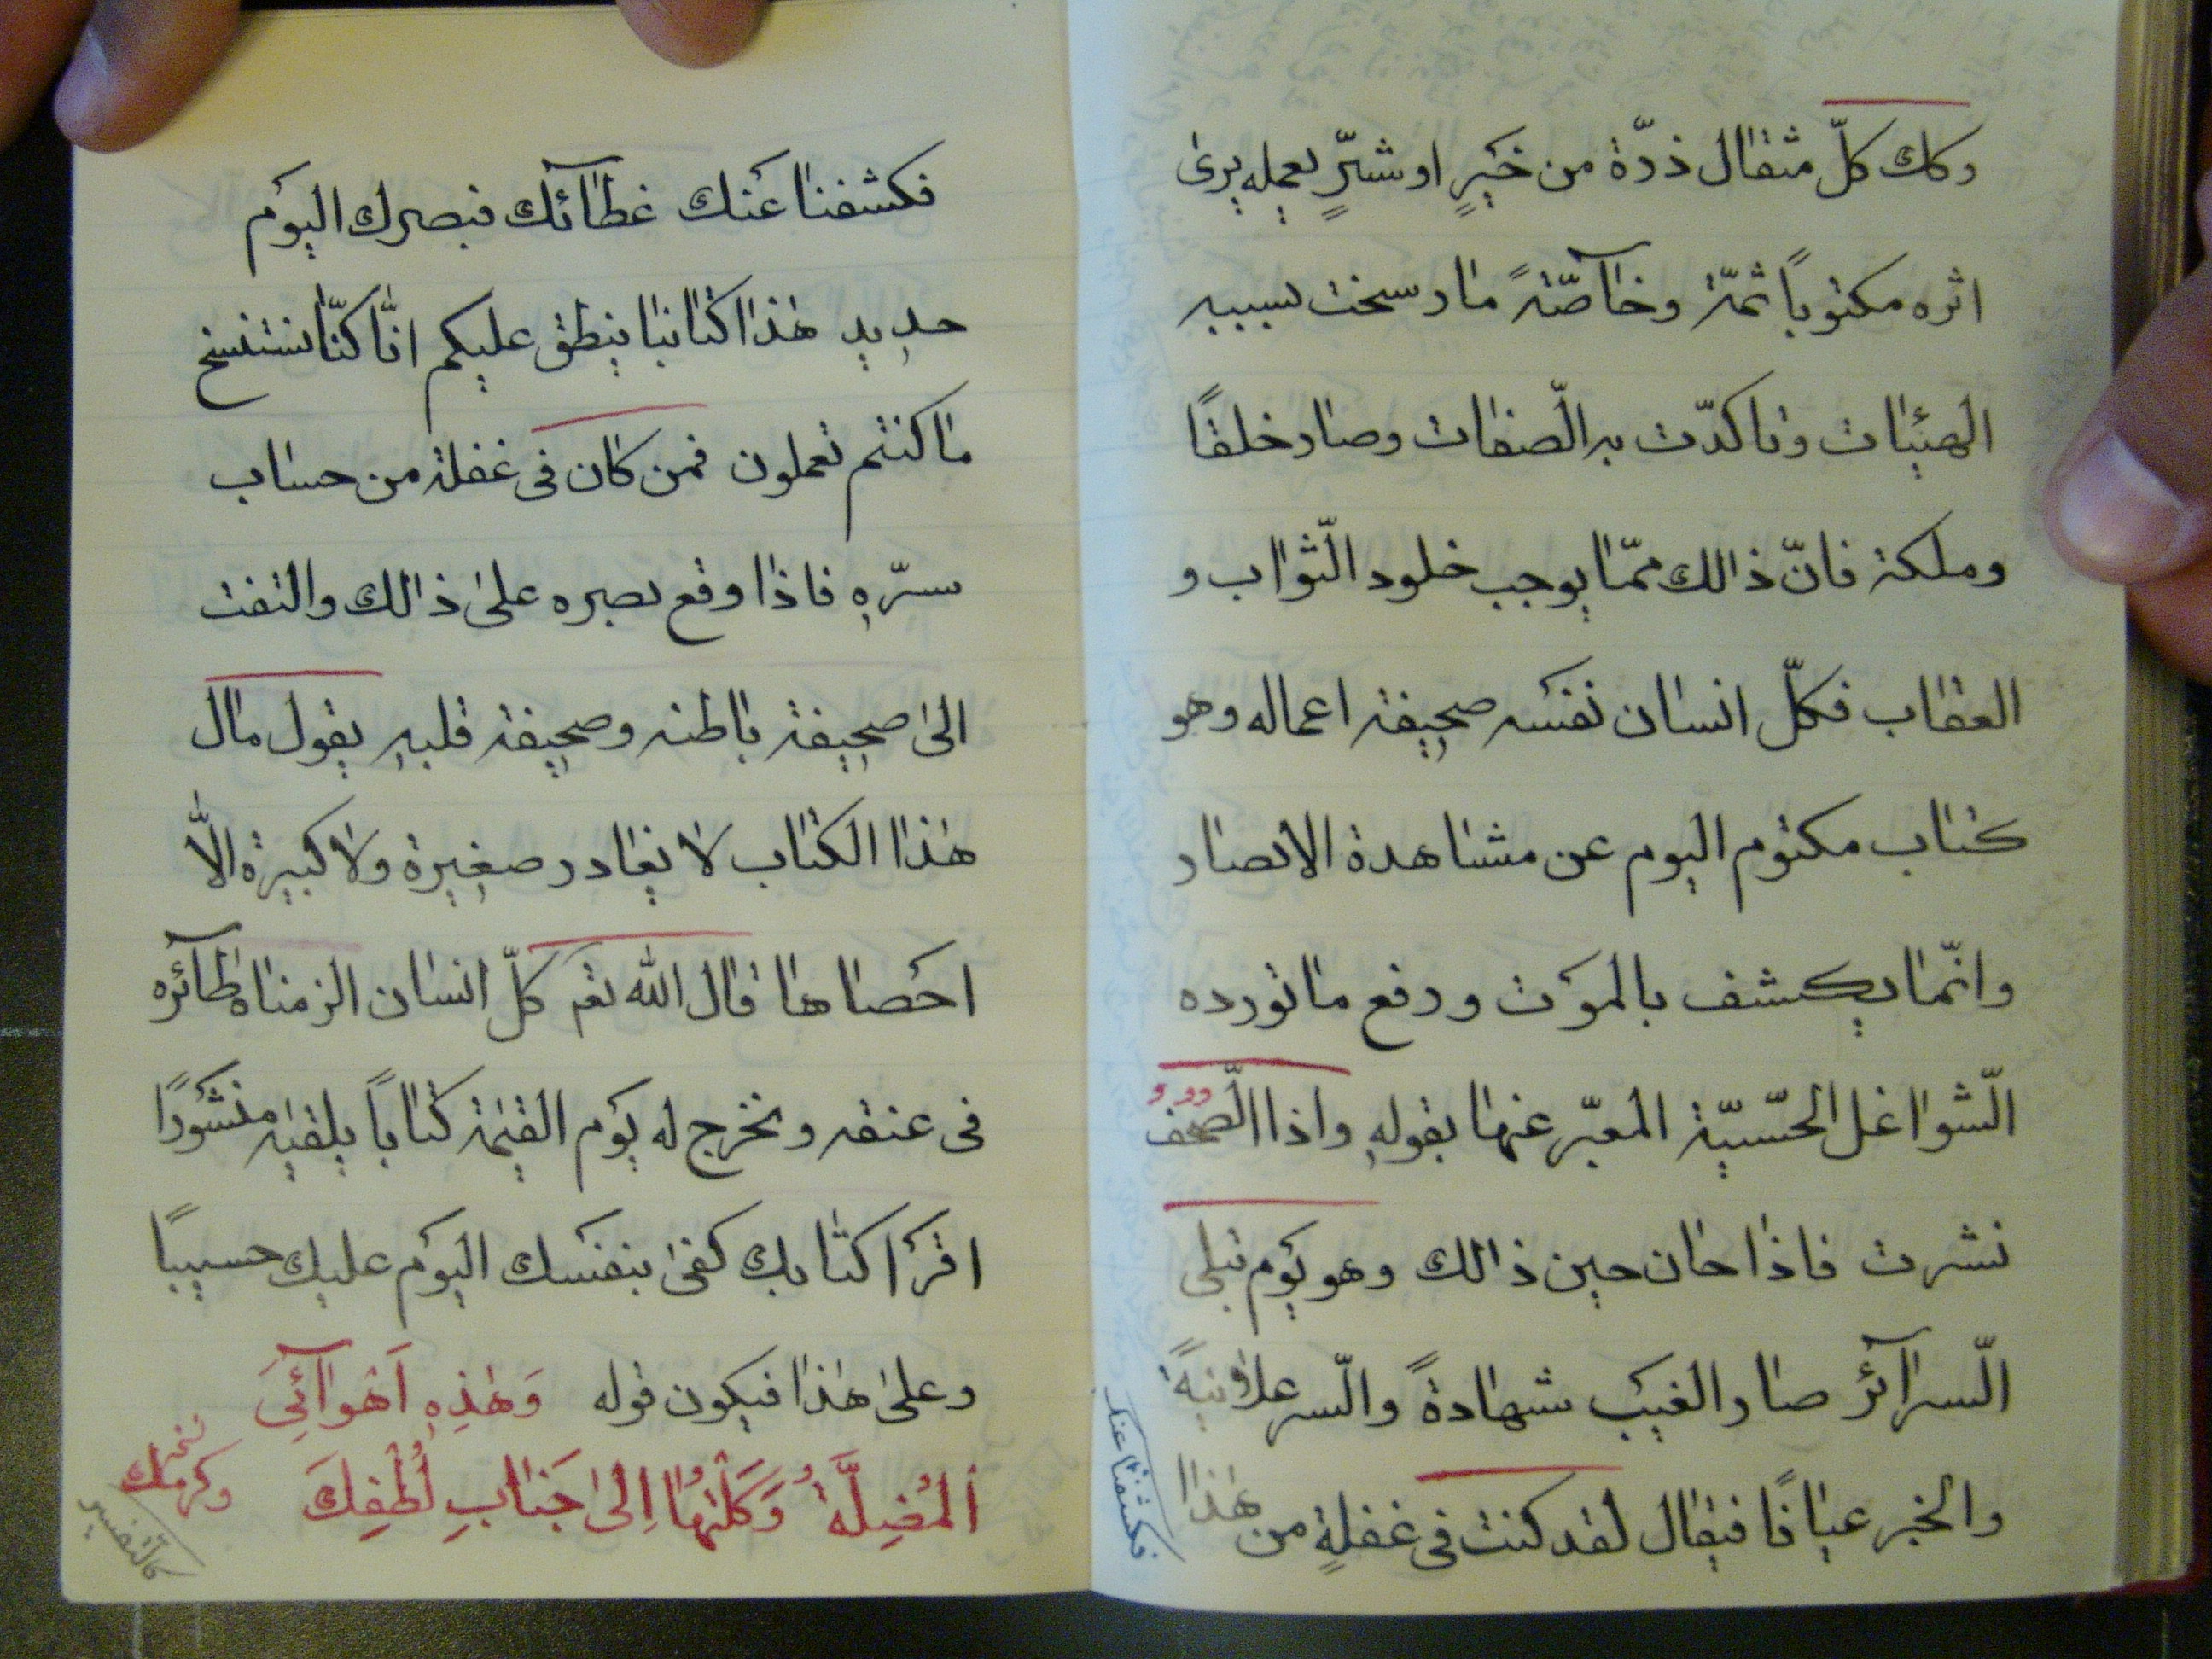 وكك كلّ مثقال ذرّة من خَيرٍ او شرٍّ يعمله يرىٰ
اثره مكتوباً ثمّة وخآصّةً ما رسخت بسببه
الهيئات وتاكدّت به الصّفات وصار خلقاً
وملكة فانّ ذالك ممّا يوجب خلود الثّواب و
العقاب فكلّ انسان نفسَه صحيفة اعماله وهو
كتاب مكتوم اليوم عن مشاهدة الابصار
وانّما يكشف بالموَت ورفع ما تورده
الشّواغل الحسّيّة المعبّر عنها بقولهِ واذا الصّحف
نشرت فاذا حان حين ذالك وهو يوَم تبلى
السّرآئر صار الغيَب شهادةً والسّر علانيةً
والخبر عياناً فيقال لقد كنت فى غفلةٍ من هٰذا
فكشفنا عنك
فكشفنا عَنك غطآئك فبصرك اليوَم
حديد هٰذا كتابنا ينطق عليكم انّا كنّا نستنسخ
ما كنتم تعملون فمن كان فى غفلة من حساب
سرّهِ فاذا وقع بصره علىٰ ذالك والتفت
الىٰ صحيفة باطنه وصحيفة قلبهِ يقول مال
هٰذا الكتاب لا يغادر صغيرة ولا كبيرة الّا
احَصاها قال الله تعٰ كلّ انسان الزمناه طآئره
فى عنقه ونخرج له يوَم القيٰمة كتاباً يلقيٰه منشوَراً
اقرَا كتابك كفىٰ بنفسَك اليوَم عليك حسيباً
وعلىٰ هٰذا فيكون قوله وَهٰذِهِ اَهَوآئِىَ
المُضِلَّةُ وَكَلْتُها اِلىٰ جَنابِ لُطْفِكَ
وكرمك
كالتفسير